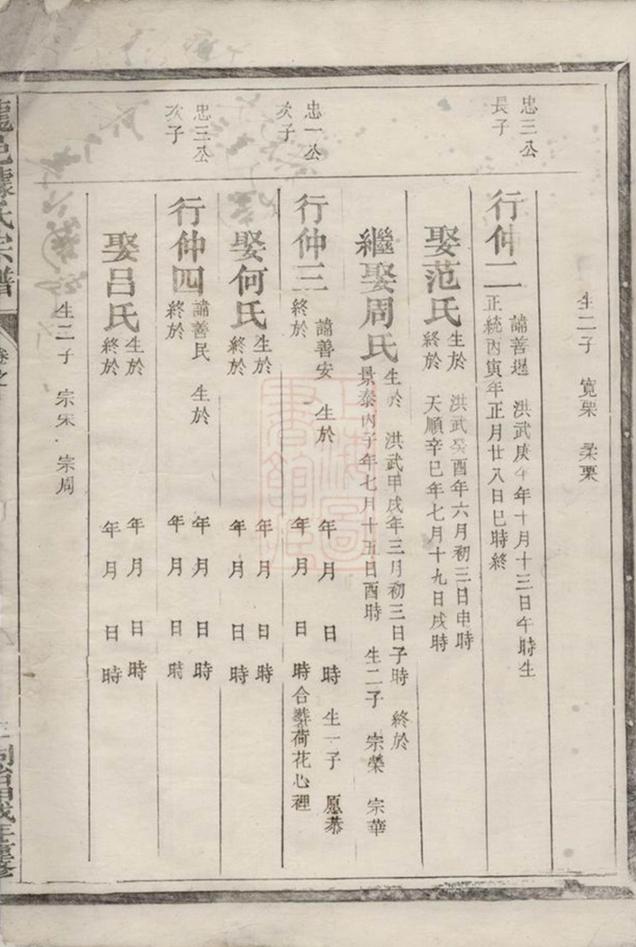 生二子 寬栗 柔栗
忠三公
長子
行仲二
諱善暹 洪武庚午年十月十三日午時生
正統丙寅年正月廿八日巳時終
娶范氏
生於 洪武癸酉年六月初三日申時
終於 天順辛巳年七月十九日戌時
繼娶周氏
生於 洪武甲戌年三月初三日子時 終於
景泰丙子年七月十五日酉時 生二子 宗榮 宗華
忠一公
次子
行仲三
諱善安 生於 年 月 日 時 生一子 愿恭
終於 年 月 日 時合葬荷花心裡
娶何氏
生於 年 月 日 時
終於 年 月 日 時
忠三公
次子
行仲四
諱善民 生於 年 月 日 時
終於 年 月 日 時
娶呂氏
生於 年 月 日 時
終於 年 月 日 時
生二子 宗宋 宗周
氏宗譜
卷之